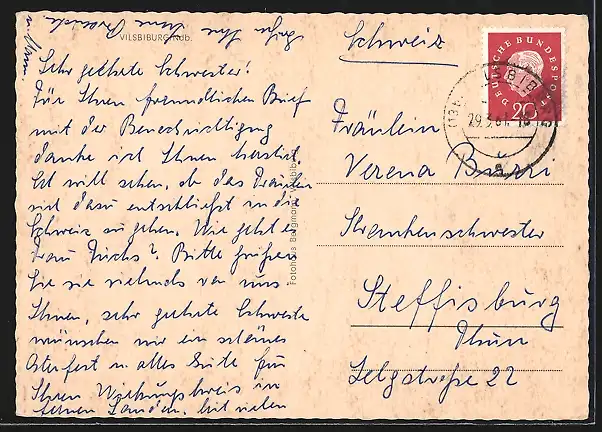 VILSBIBURG/Ndb.
Sehr geehrte Schwester!
Für Ihren freundlichen Brief
mit der Benachrichtigung
danke ich Ihnen herzlich.
Ich will sehen, ob das Fräulein
sich dazu entschließt in die
Schweiz zu gehen. Wie geht es
Frau Fuchs? Bitte grüßen
Sie sie vielmals von uns
Ihnen, sehr geehrte Schwester
wünschen wir ein schönes
Osterfest u. alles Gute für
Ihren Wirkungskreis in
fernen Landen. Mit vielen
Grüße Ihre
Fotohaus Bergmann, Vilsbiburg
Schweiz
DEUTSCHE BUNDESPOST
20
29.3.61
Fräulein
Verena
Krankenschwester
Steffisburg
Thun
Selgstraße 22